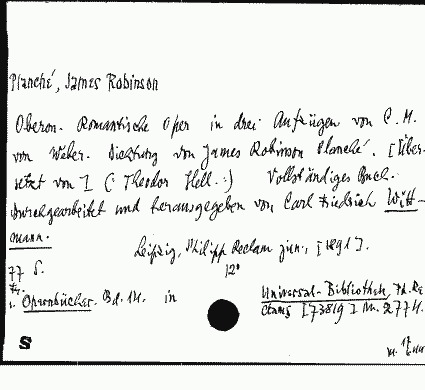 Planché, James Robinson
Oberon. Romantische Oper in drei Aufzügen von C. M.
von Weber. Dichtung von James Robinson Planché. [Über-
setzt von] (: Theodor Hell :) Vollständiges Buch.
Durchgearbeitet und herausgegeben von Carl Friedrich Witt-
mann.
Leipzig, Philipp Reclam jun., [1891].
77 S. 12°
Opernbücher. Bd. 14. in Universal-Bibliothek, Ph. Re
clams [73819] Nr. 2774.
S